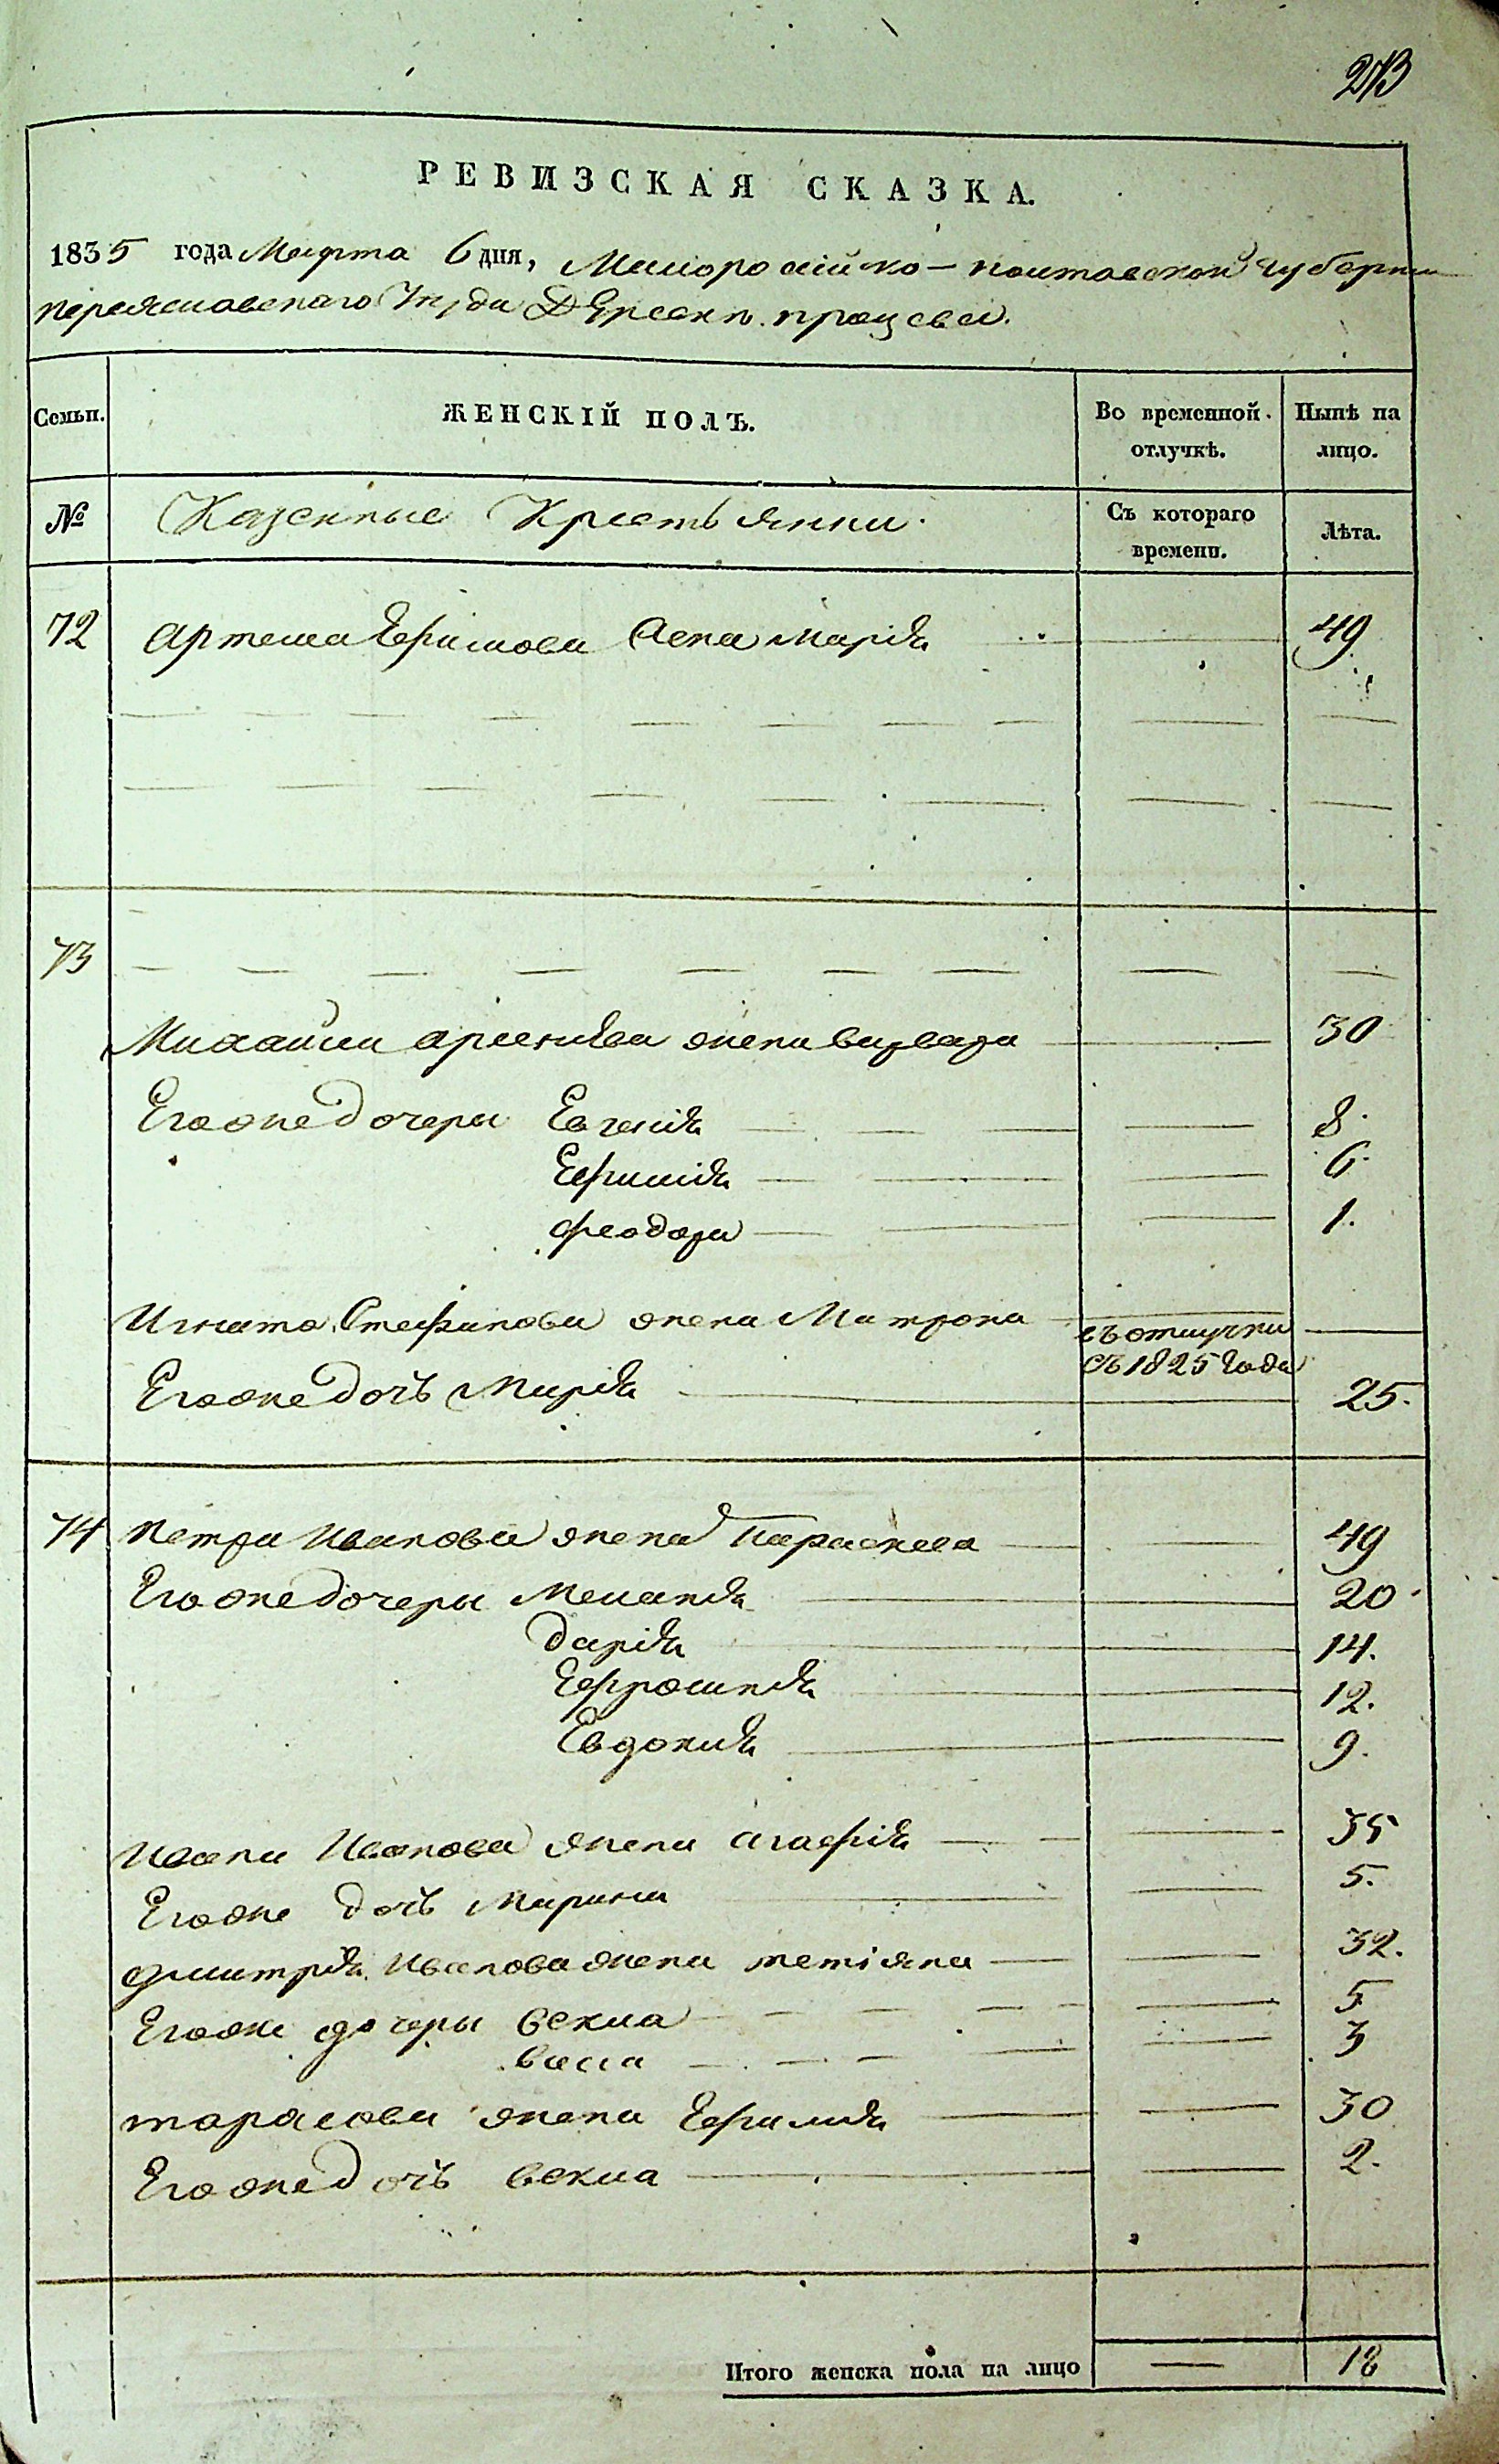 213
РЕВИЗСКАЯ СКАЗКА.
1835 года Марта 6 дня, Малоросійско-полтавской губерніи
переяславскаго Уезда Деревни процевки.
Семьи. ЖЕНСКІЙ ПОЛЪ. Во временной отлучкѣ. Нынѣ на лицо.
№ Казенные Крестьянки. Съ котораго времени. Лѣта.
72 Артема Ефимова жена Марія 49
73
Михайла Арсеніева жена варвара 30
Его же дочери Евгенія 8.
Ефимія 6.
феодора 1.
Игната Стефанова жена Матрона въ отлучки
съ 1825 года
Его же дочь Марія 25.
74 Петра Иванова жена Параскева 49
Его же дочери Меланія 20
дарія 14.
Ефросинія 12.
Евдокія 9.
Ивана Иванова жена агафія 35
Его же дочь Марина 5.
дмитрія Иванова жена тетіяна 32.
Его же дочери векла 5
васса 3
тарасова жена Ефимія 30
Его же дочь векла 2.
Итого женска пола на лицо — 18